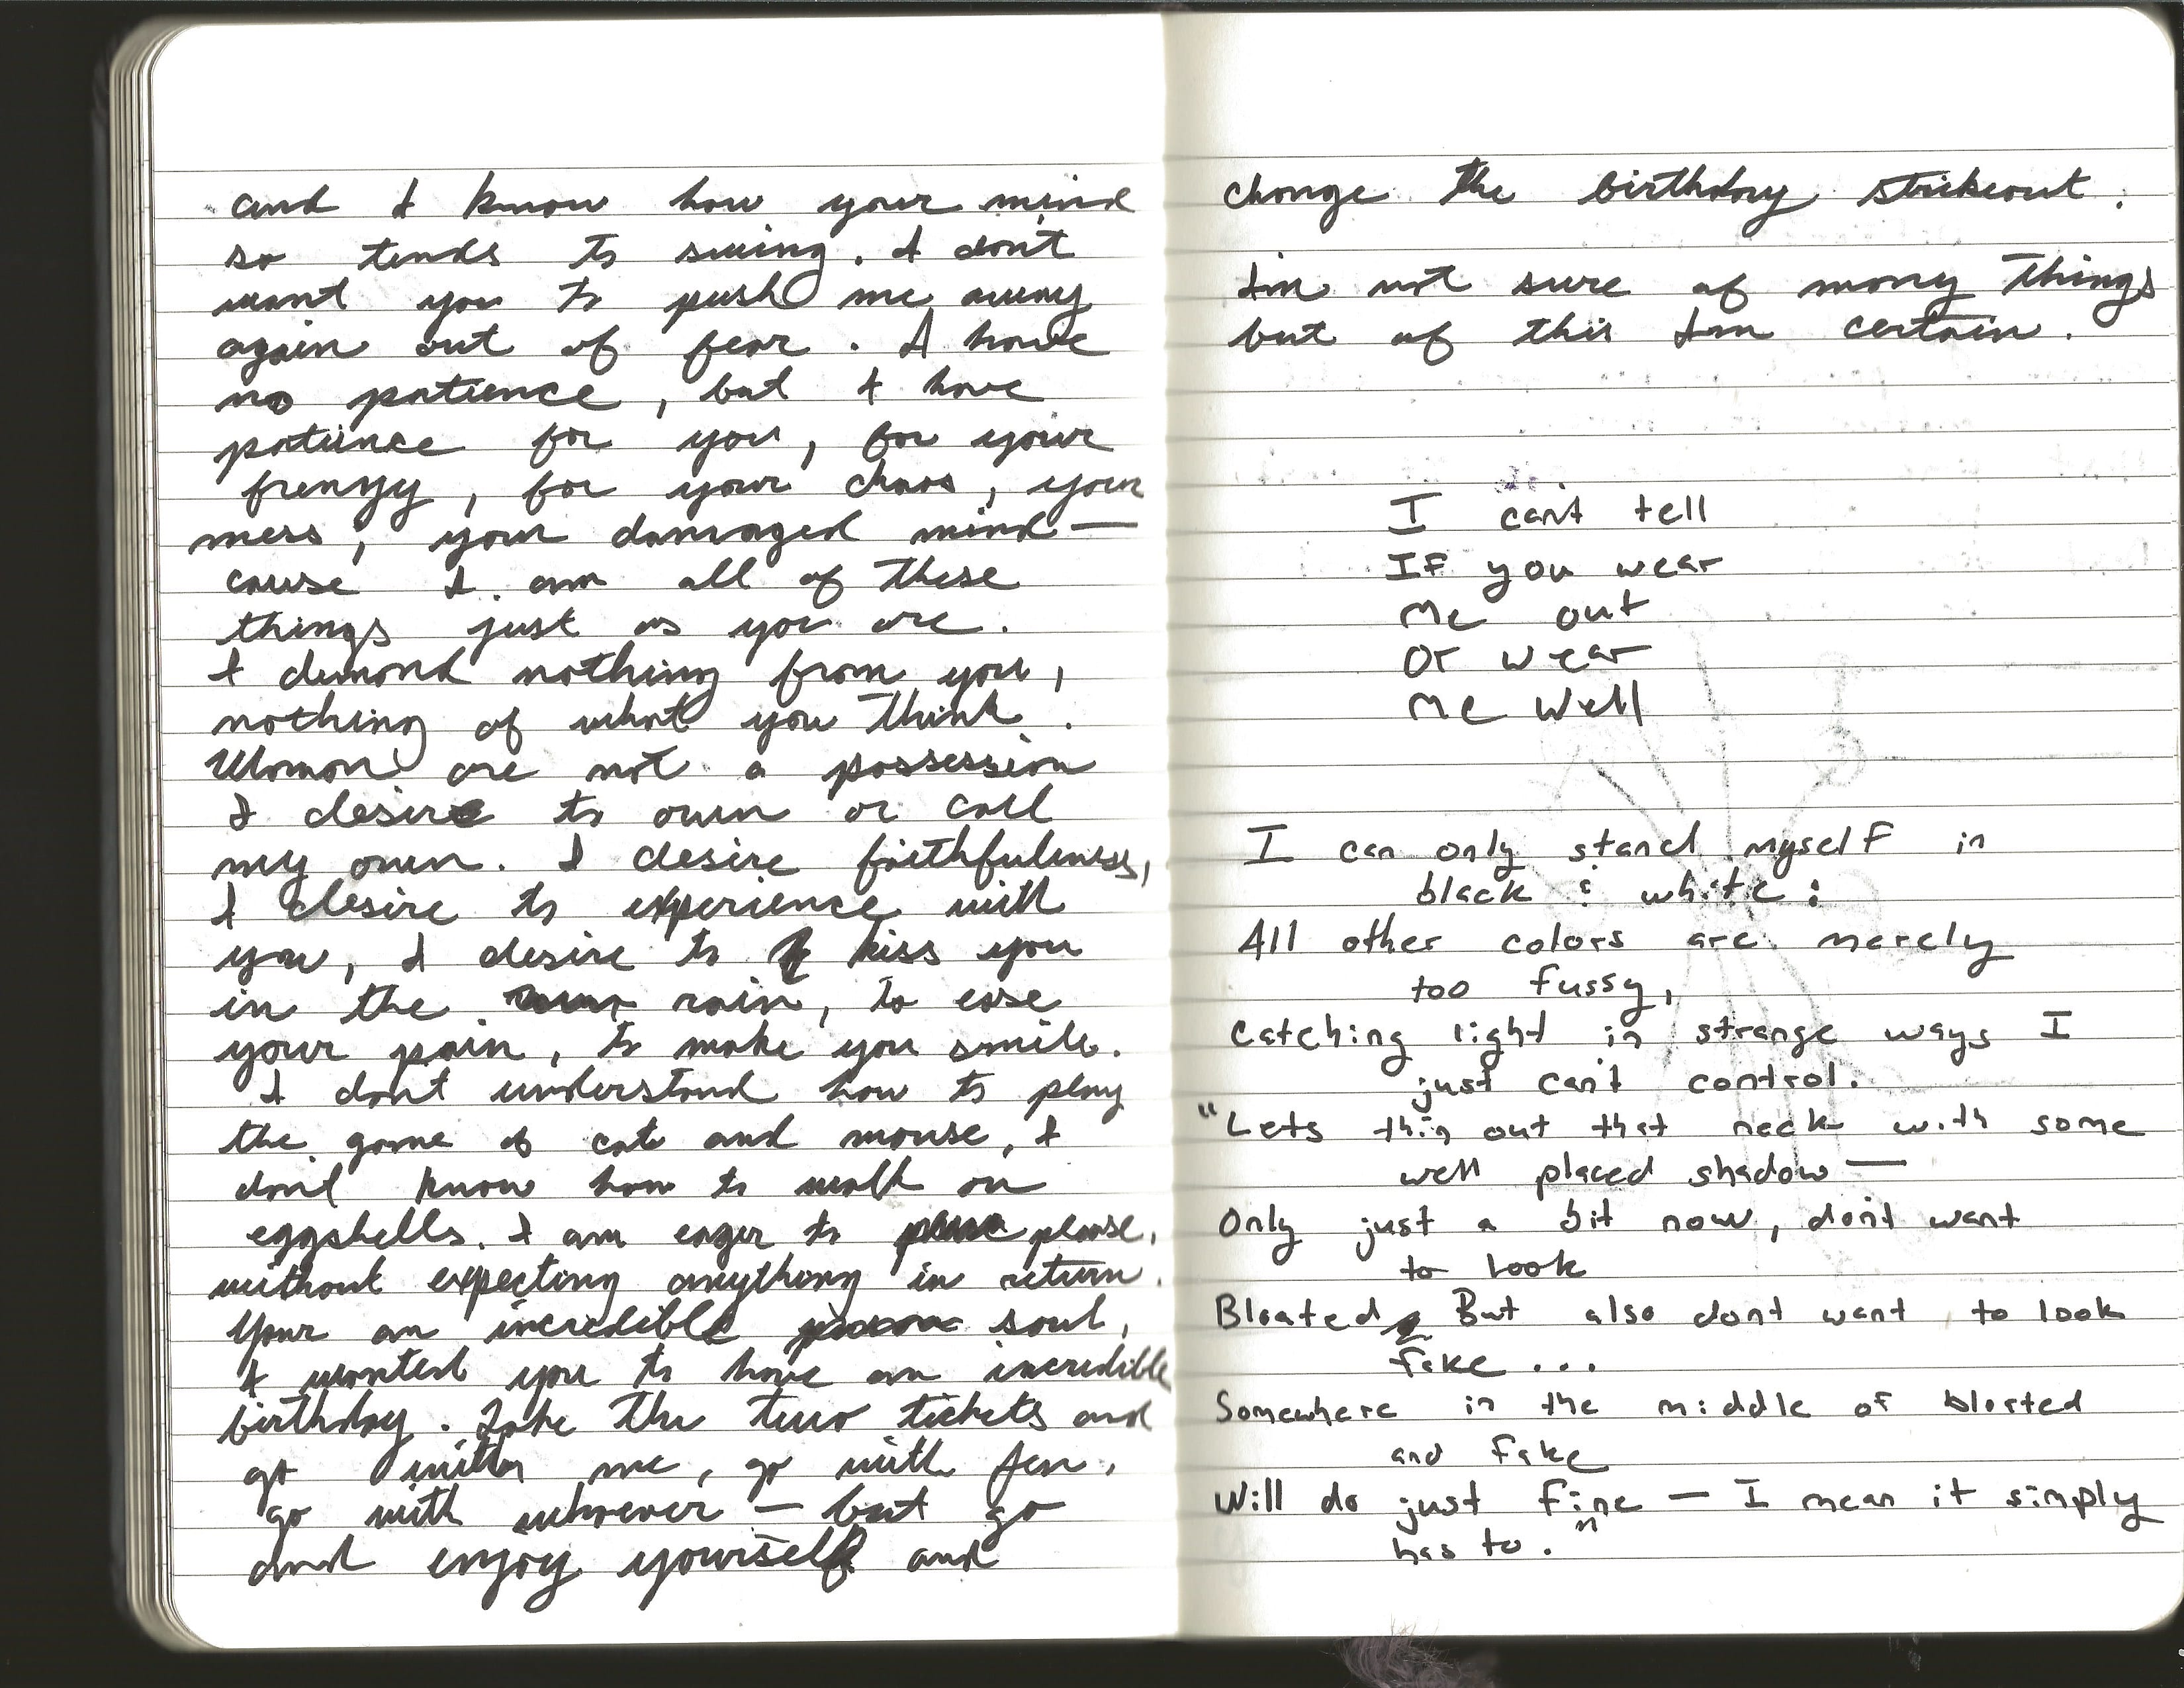 and I know how your mind
so tends to swing. I dont
want you to push me away
again out of fear. I have
no patience, but I have
patience for you, for your
frenzy, for your chaos, your
mess, your damaged mind —
cause I am all of these
things just as you are.
I demand nothing from you,
nothing of what you think.
Woman are not a possession
I desire to own or call
my own. I desire faithfulness,
I desire to experience with
you, I desire to kiss you
in the rain, to ease
your pain, to make you smile.
I dont understand how to play
the game of cat and mouse, I
dont know how to walk on
eggshells. I am eager to please,
without expecting anything in return.
Your an incredible soul,
I wanted you to have an incredible
birthday. Take the two tickets and
go with me, go with Jen,
go with whoever — but go
and enjoy yourself and
change the birthday strikeout.
Im not sure of many things
but of this Im certain.
I can't tell
If you wear
Me out
Or wear
Me well
I can only stand myself in
black & white:
All other colors are merely
too fussy,
Catching light in strange ways I
just can't control.
"Lets thin out that neck with some
well placed shadow —
Only just a bit now, don't want
to look
Bloated But also dont want to look
fake ...
Somewhere in the middle of bloated
and fake
Will do just fine — I mean it simply
has to."